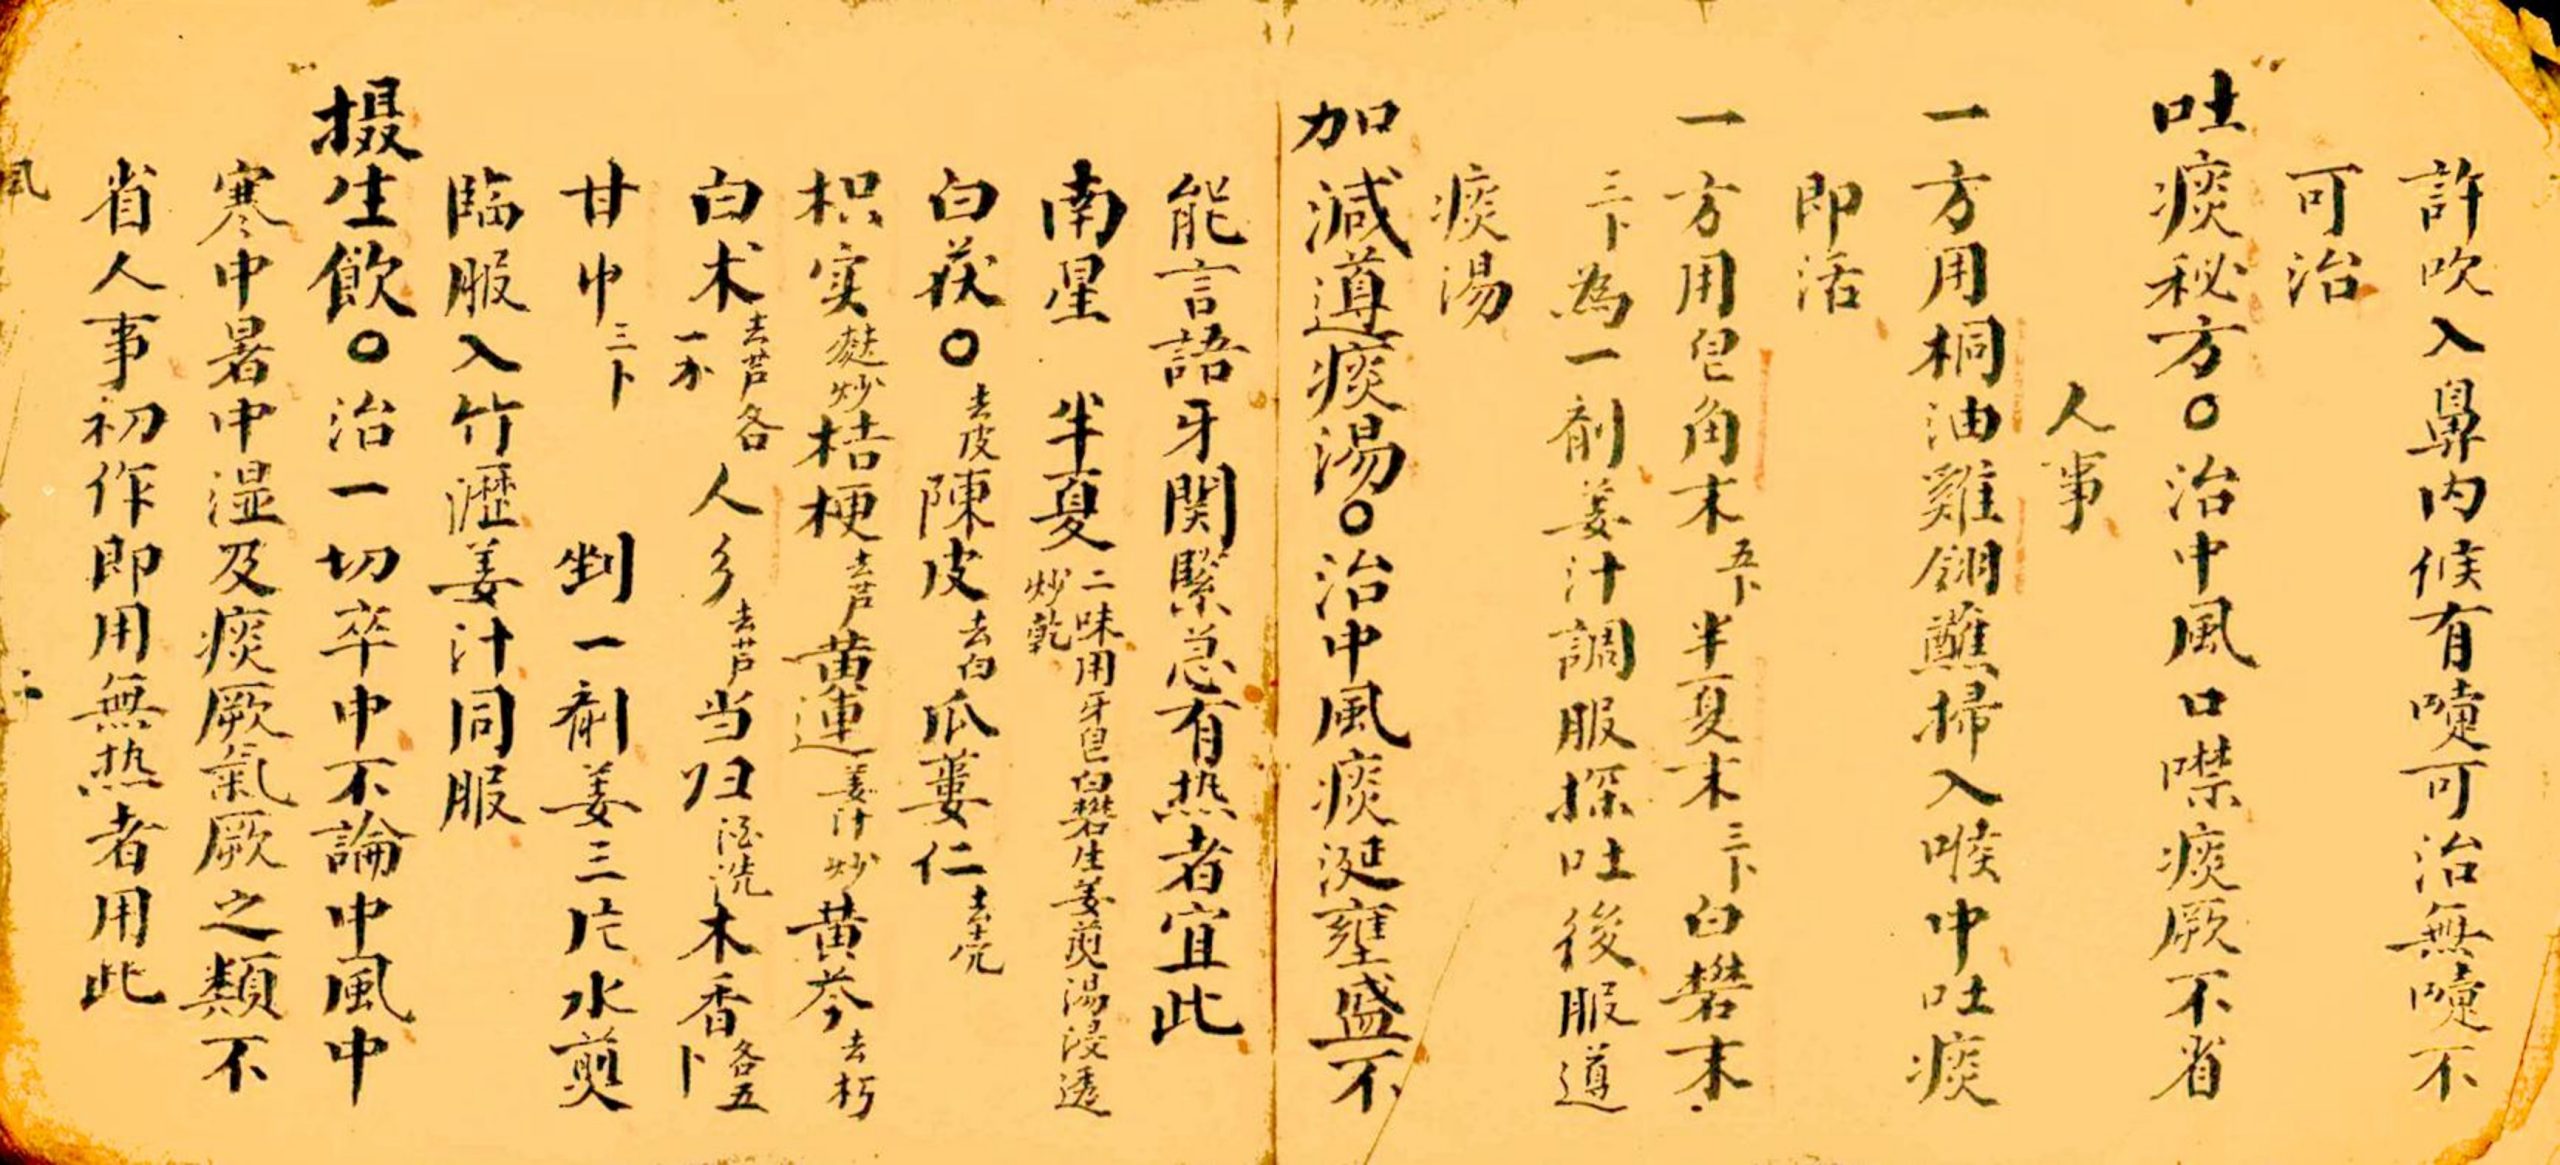 許吹入鼻內候有嚏可治無嚏不
可治
吐痰秘方○治中風口噤痰厥不省
人事
一方用桐油雞翎蘸掃入喉中吐痰
即活
一方用皂角末五卜半夏末三卜白礬末
三卜為一剤姜汁調服探吐後服導
痰湯
加減導痰湯○治中風痰涎壅盛不
能言語牙関緊急有热者宜此
南星 半夏二味用牙皂白礬生姜煎湯浸透炒乾
白茯○去皮陳皮去白瓜蔞仁去壳
枳实麸炒桔梗去芦黄連姜汁炒黄芩去朽
白术去芦各一分人乡去芦当归酒洗木香各五卜
甘中三卜 剉一剤姜三片水煎
臨服入竹瀝姜汁同服
摄生飲○治一切卒中不論中風中
寒中暑中湿及痰厥氣厥之類不
省人事初作即用無热者用此
風